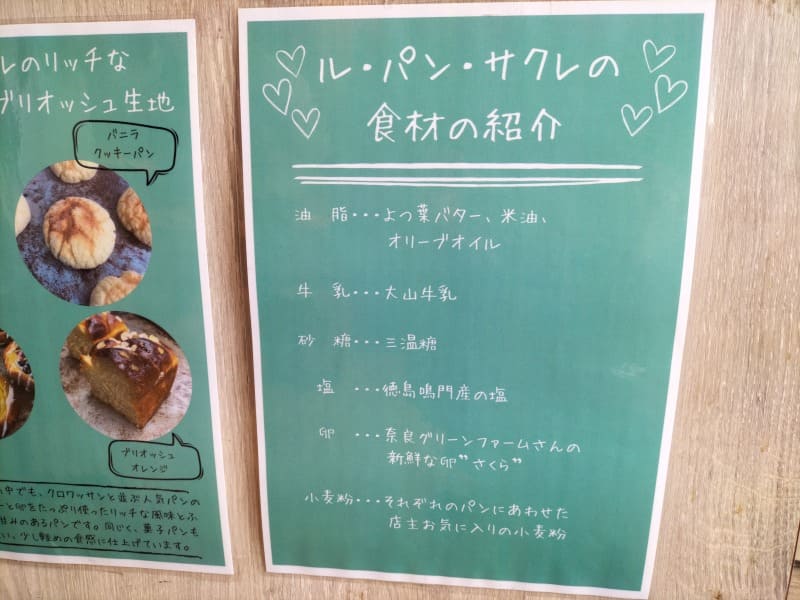 レのリッチな
ブリオッシュ生地
バニラ
クッキーパン
ブリオッシュ
オレンジ
中でも、クロワッサンと並ぶ人気パンの
ーと卵をたっぷり使ったリッチな風味とふ
甘みのあるパンです。同じく、菓子パンも
い、少し軽めの食感に仕上げています。
ル・パン・サクレの
食材の紹介
油 脂・・・よつ葉バター、米油、
オリーブオイル
牛 乳・・・大山牛乳
砂 糖・・・三温糖
塩 ・・・徳島鳴門産の塩
卵 ・・・奈良グリーンファームさんの
新鮮な卵"さくら"
小麦粉・・・それぞれのパンにあわせた
店主お気に入りの小麦粉